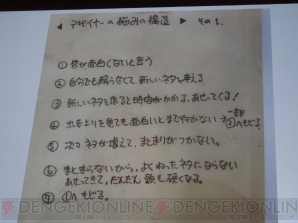 ◀ デザイナーの悩みの構造 ▶ その1.
① 皆が面白くないと言う
② 自分でも解らなくて、新しいネタを考える
③ 新しいネタを作ると時間がかかる、あせってくる!
④ 出来上りを見ても面白いとまで行かない 一部③へもどる。
⑤ 次々ネタが増えて、まとまりがつかない。
⑥ まとまらないから、よくねったネタにならない
あせってきて、だんだん頭も硬くなる。
⑦ ①へもどる。
©DENGEKIONLINE